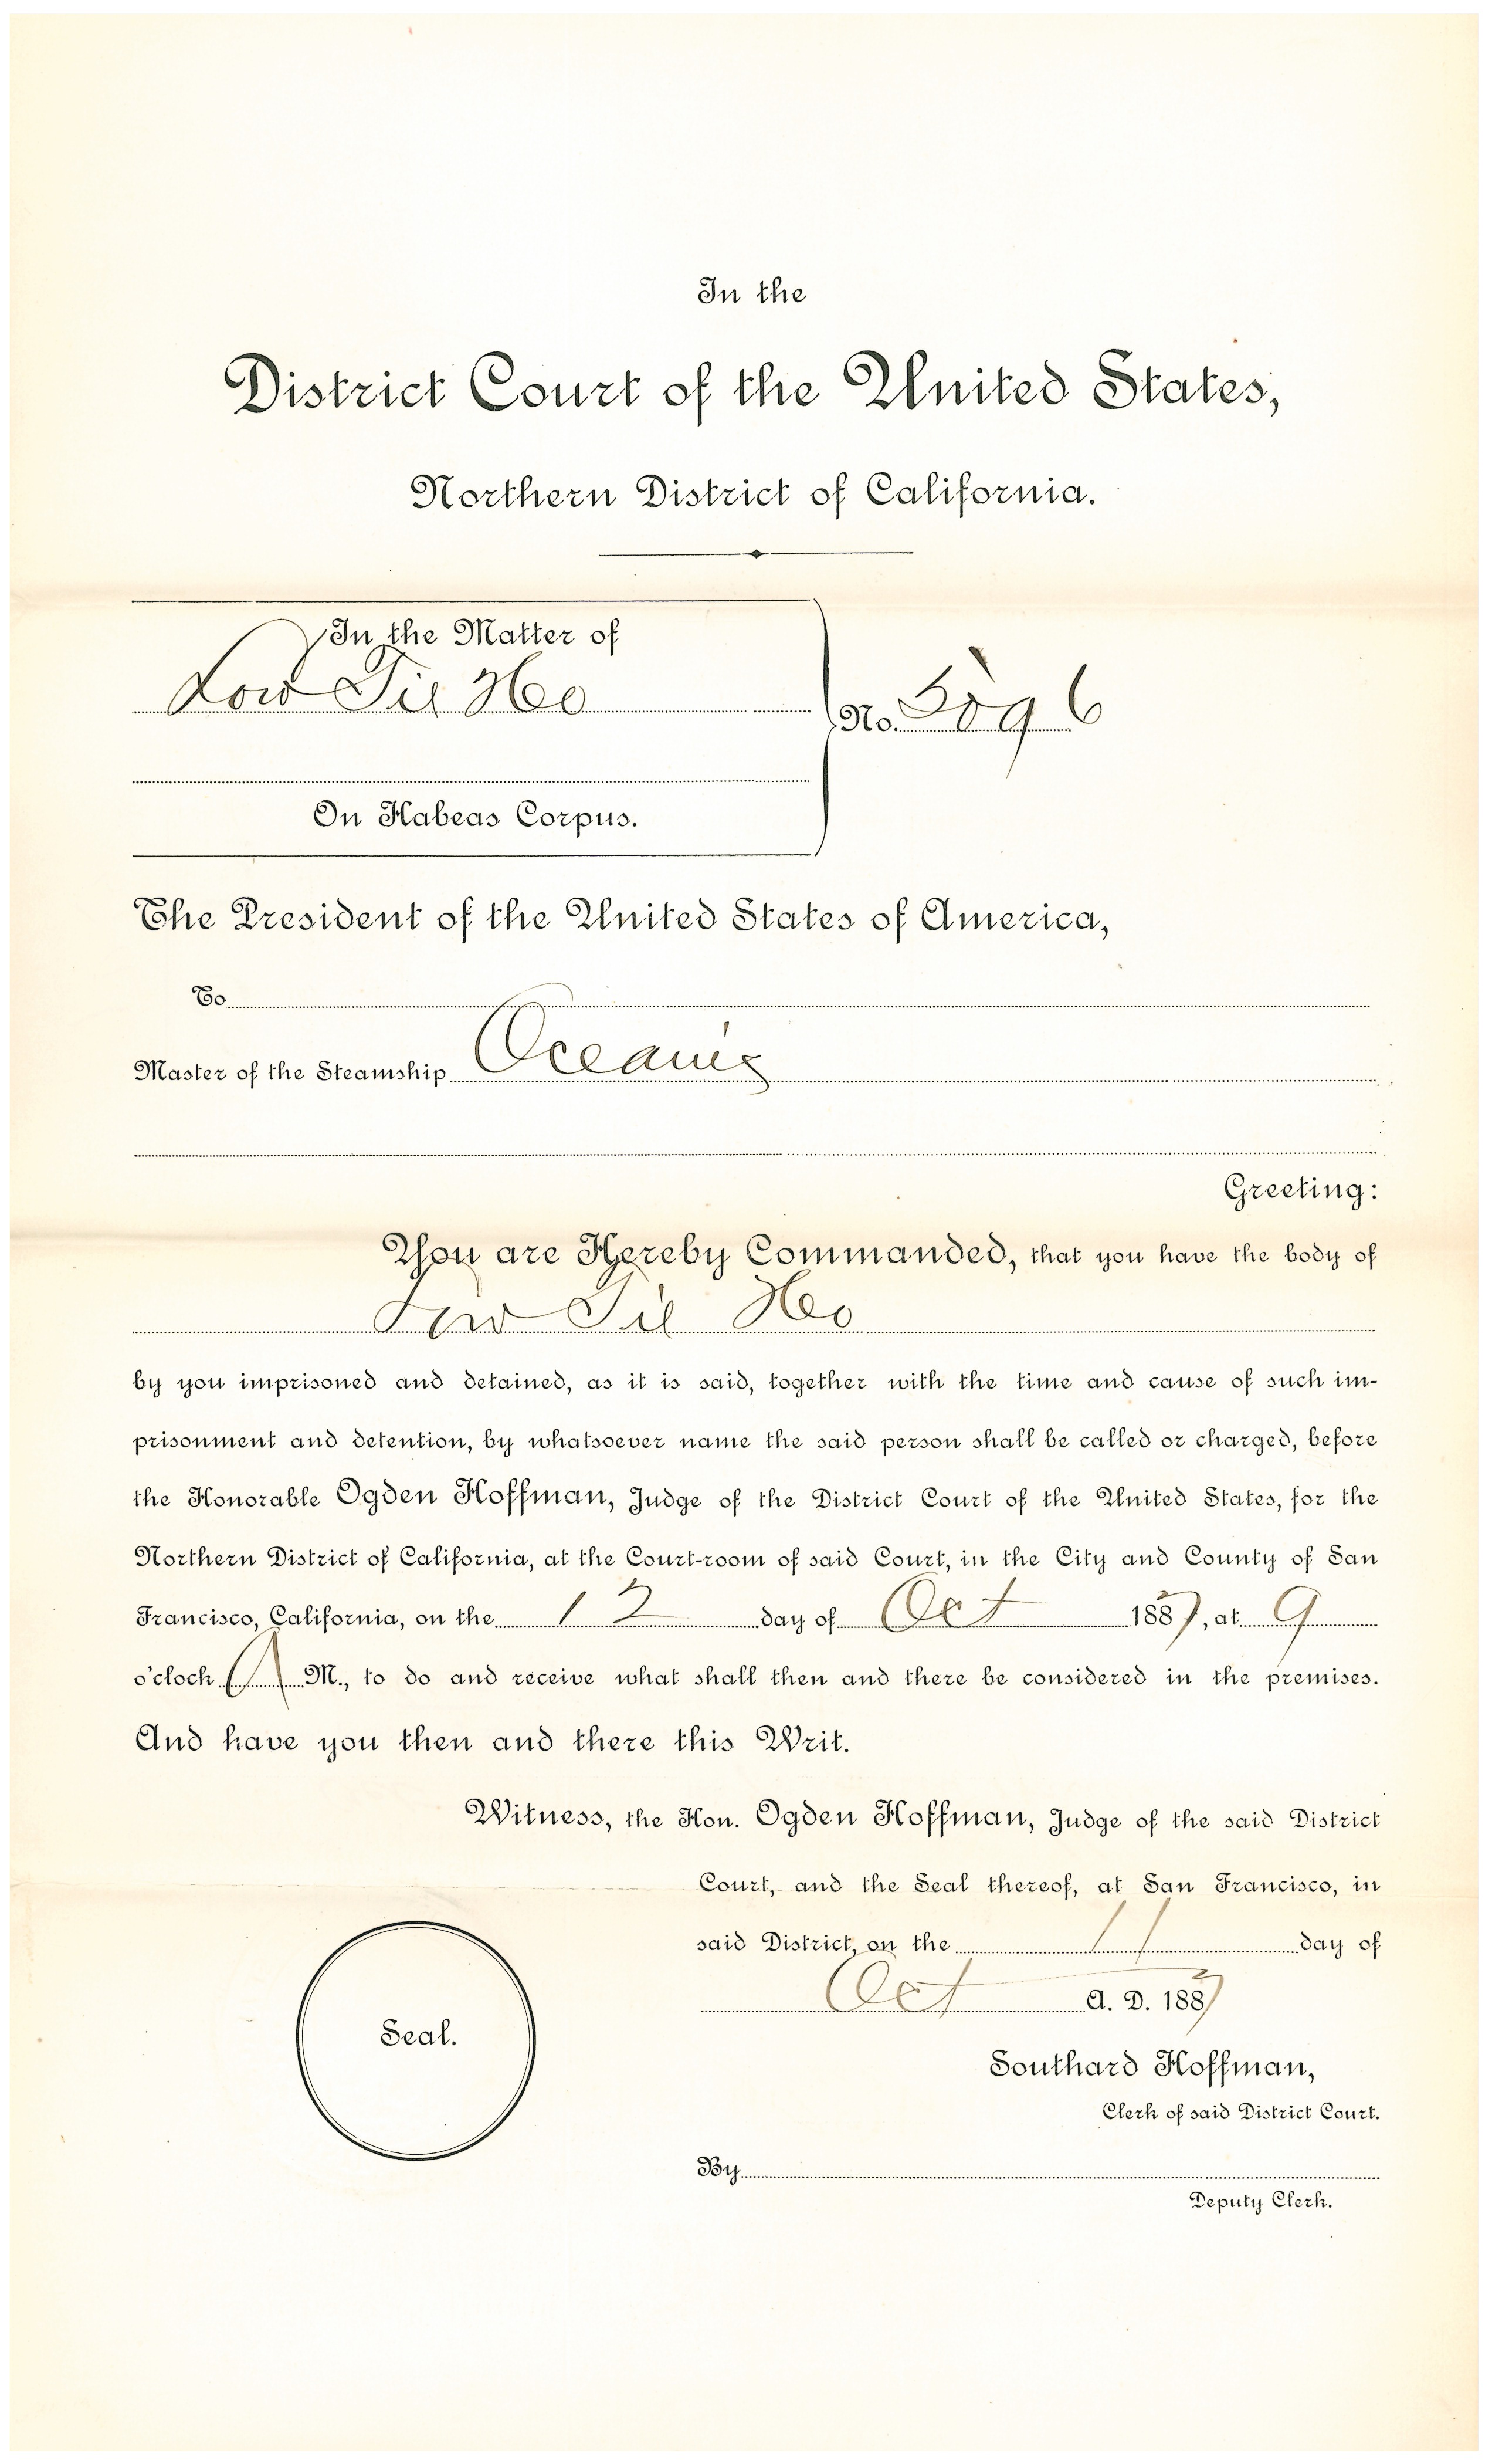 In the
District Court of the United States,
Northern District of California.
In the Matter of
Low Tie Heo
No. 5896
On Habeas Corpus.
The President of the United States of America,
To
Master of the Steamship Oceanic
Greeting:
You are Hereby Commanded, that you have the body of
Low Tie Heo
by you imprisoned and detained, as it is said, together with the time and cause of such im-
prisonment and detention, by whatsoever name the said person shall be called or charged, before
the Honorable Ogden Hoffman, Judge of the District Court of the United States, for the
Northern District of California, at the Court-room of said Court, in the City and County of San
Francisco, California, on the 12 day of Oct 1887, at 9
o'clock A M., to do and receive what shall then and there be considered in the premises.
And have you then and there this Writ.
Witness, the Hon. Ogden Hoffman, Judge of the said District
Court, and the Seal thereof, at San Francisco, in
said District, on the 11 day of
Oct A. D. 1887
Seal.
Southard Hoffman,
Clerk of said District Court.
By
Deputy Clerk.